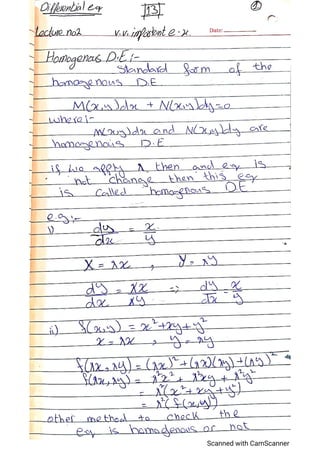 Differential eq
[13]
①
Lecture no2 v.v. important e.x. Date:
Homogenous D.E:-
Standard form of the
homogenous D.E
M(x,y)dx + N(x,y)dy=0
where:-
M(x,y)dx and N(x,y)dy are
homogenous D.E
if we apply λ then and eq is
not change then this eq
is called homogenous D.E
e.g:-
i) dy/dx = x/y
X = λx , Y = λy
dy/dx = λx/λy => dy/dx = x/y
ii) f(x,y) = x²+xy+y²
x = λx , y = λy
f(λx,λy) = (λx)²+(λx)(λy)+(λy)²
f(λx,λy) = λ²x²+λ²xy+λ²y²
= λ²(x²+xy+y²)
= λ²(f(x,y))
other method to check the
eq is homogenous or not
Scanned with CamScanner